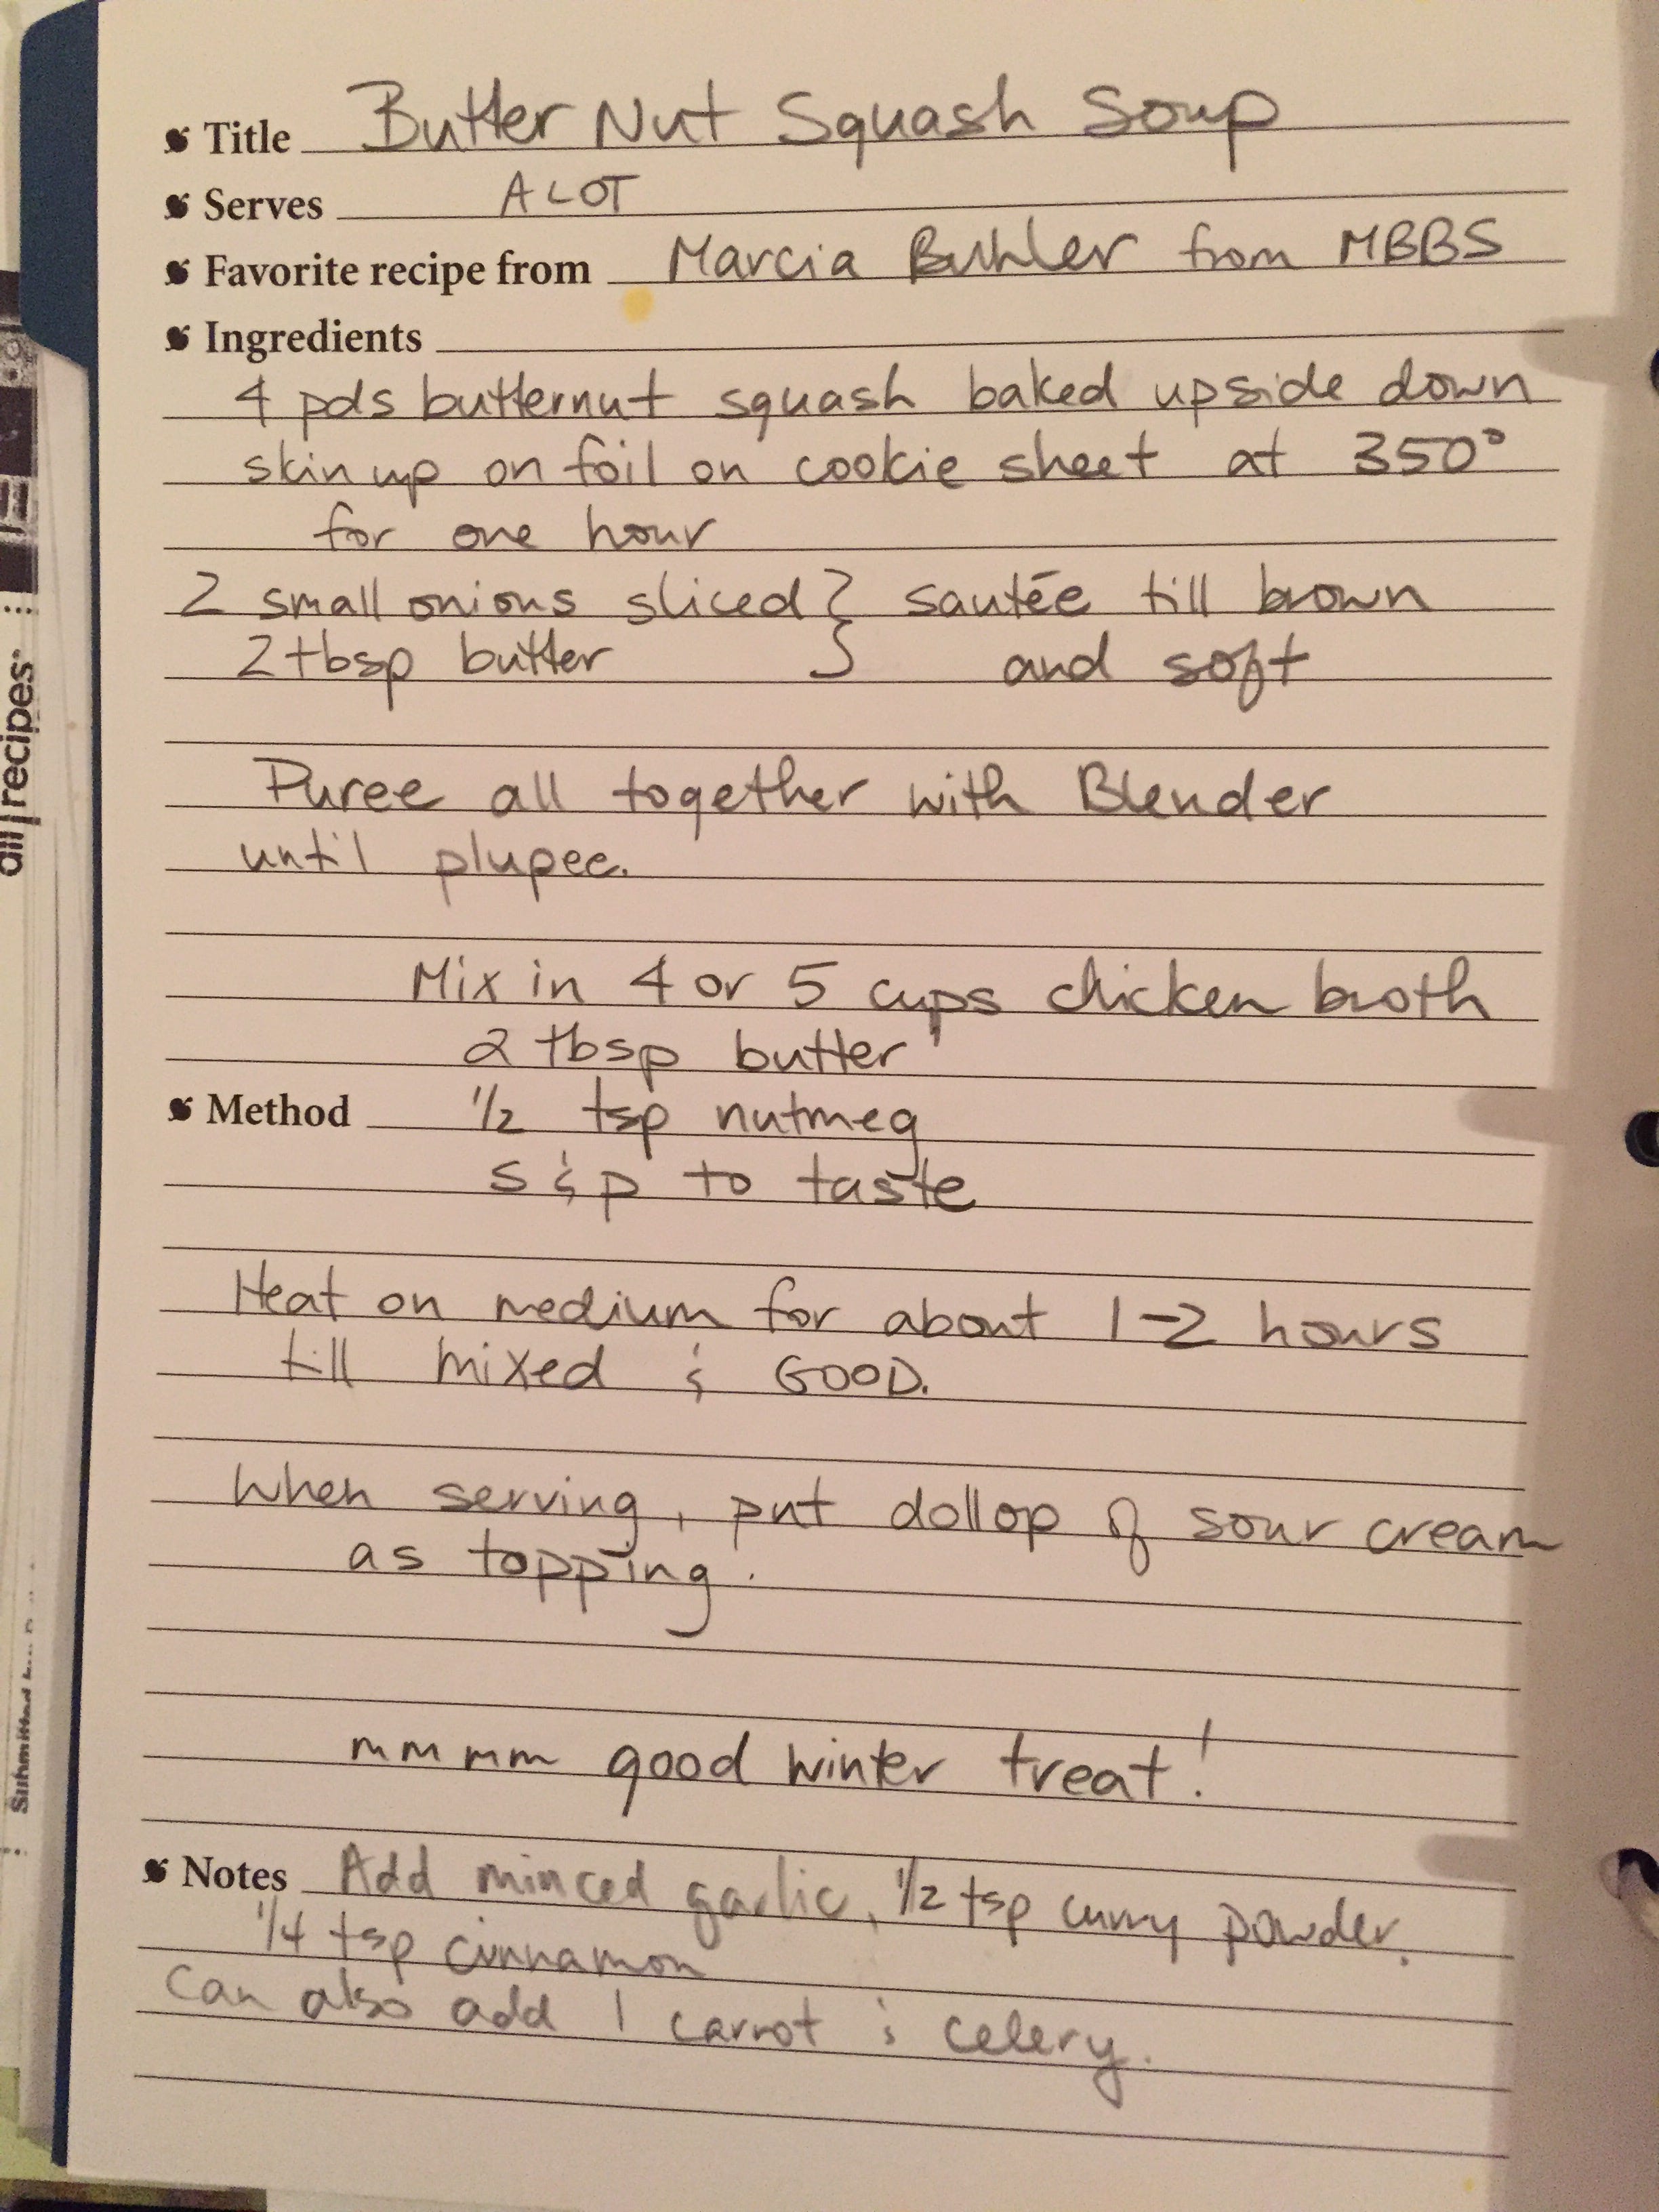 Title Butter Nut Squash Soup
Serves ALOT
Favorite recipe from Marcia Buhler from MBBS
Ingredients
4 pds butternut squash baked upside down
skin up on foil on cookie sheet at 350°
for one hour
2 small onions sliced } sautée till brown
2 tbsp butter } and soft
Puree all together with Blender
until plupee.
Mix in 4 or 5 cups chicken broth
2 tbsp butter
Method 1/2 tsp nutmeg
S & p to taste
Heat on medium for about 1-2 hours
till mixed & GOOD.
When serving, put dollop of sour cream
as topping.
mmmm good winter treat!
Notes Add minced garlic, 1/2 tsp curry powder,
1/4 tsp cinnamon
Can also add 1 carrot & celery.
all recipes
Submitted